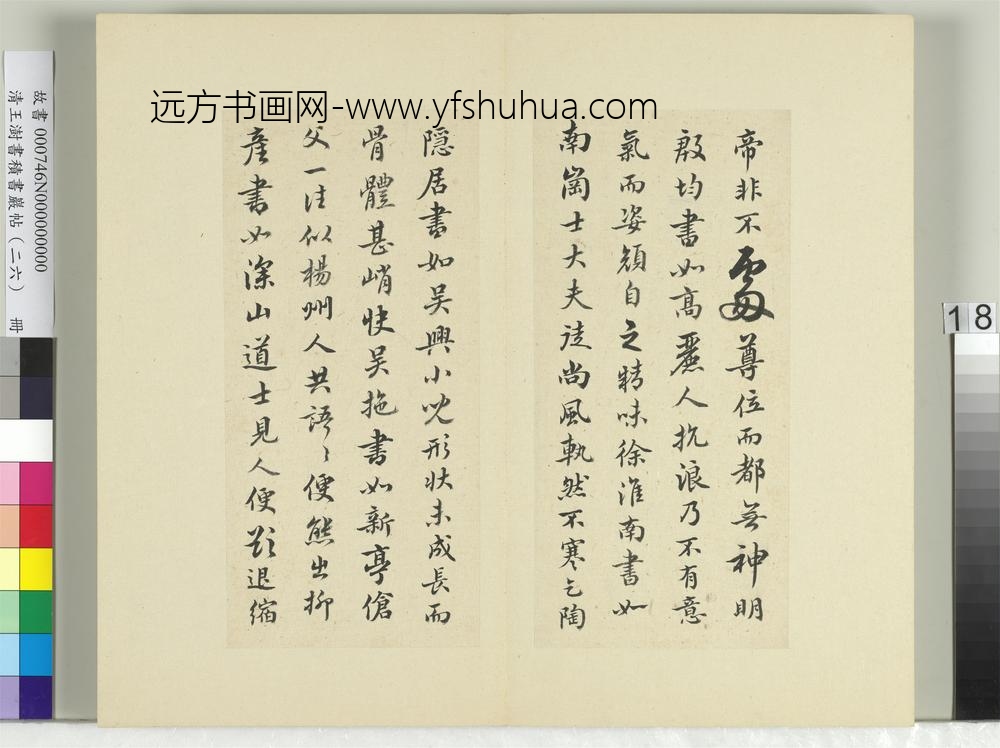 远方书画网-www.yfshuhua.com
帝非不處尊位而都無神明
殷均書如高麗人抗浪乃不有意
氣而姿顏自之精味徐淮南書如
南崗士大夫徒尚風軌然不寒乞陶
隱居書如吴興小兒形狀未成長而
骨體甚峭快吴拖書如新亭傖
父一往似楊州人共語〻便態出柳
產書如深山道士見人便欲退縮
故書 000746N000000000
清王澍書積書巖帖(二六) 冊
18